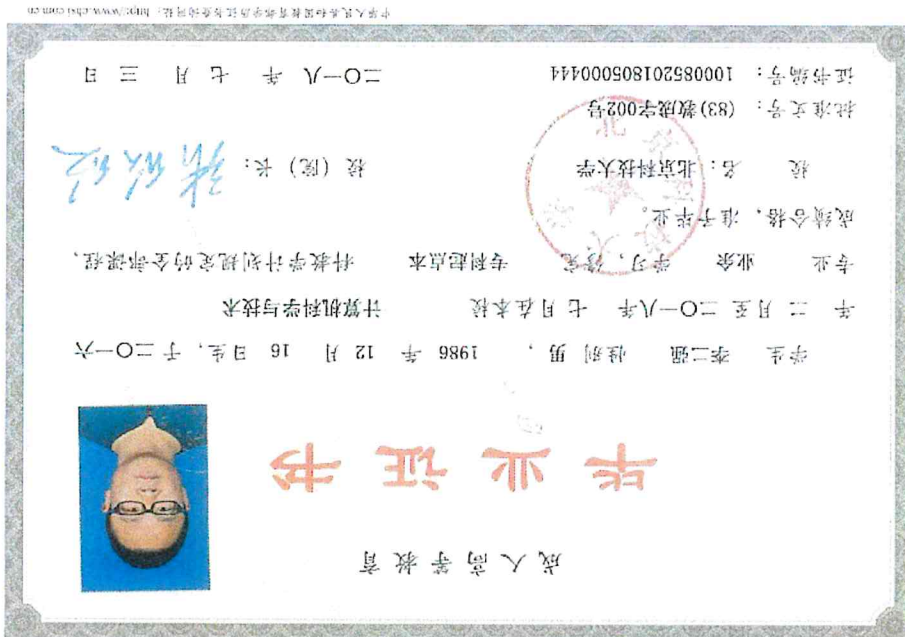 成人高等教育
毕业证书
学生 李二强 性别 男 , 1986 年 12 月 16 日生, 于 二〇一六
年 二 月至 二〇一八年 七 月在本校 计算机科学与技术
专业 业余 学习, 修完 专科起点本 科教学计划规定的全部课程,
成绩合格, 准予毕业。
校 名: 北京科技大学
校(院)长: 张欣欣
批准文号: (83)教成字002号
证书编号: 100085201805000444
二〇一八 年 七 月 三 日
中华人民共和国教育部学历证书查询网址: http://www.chsi.com.cn